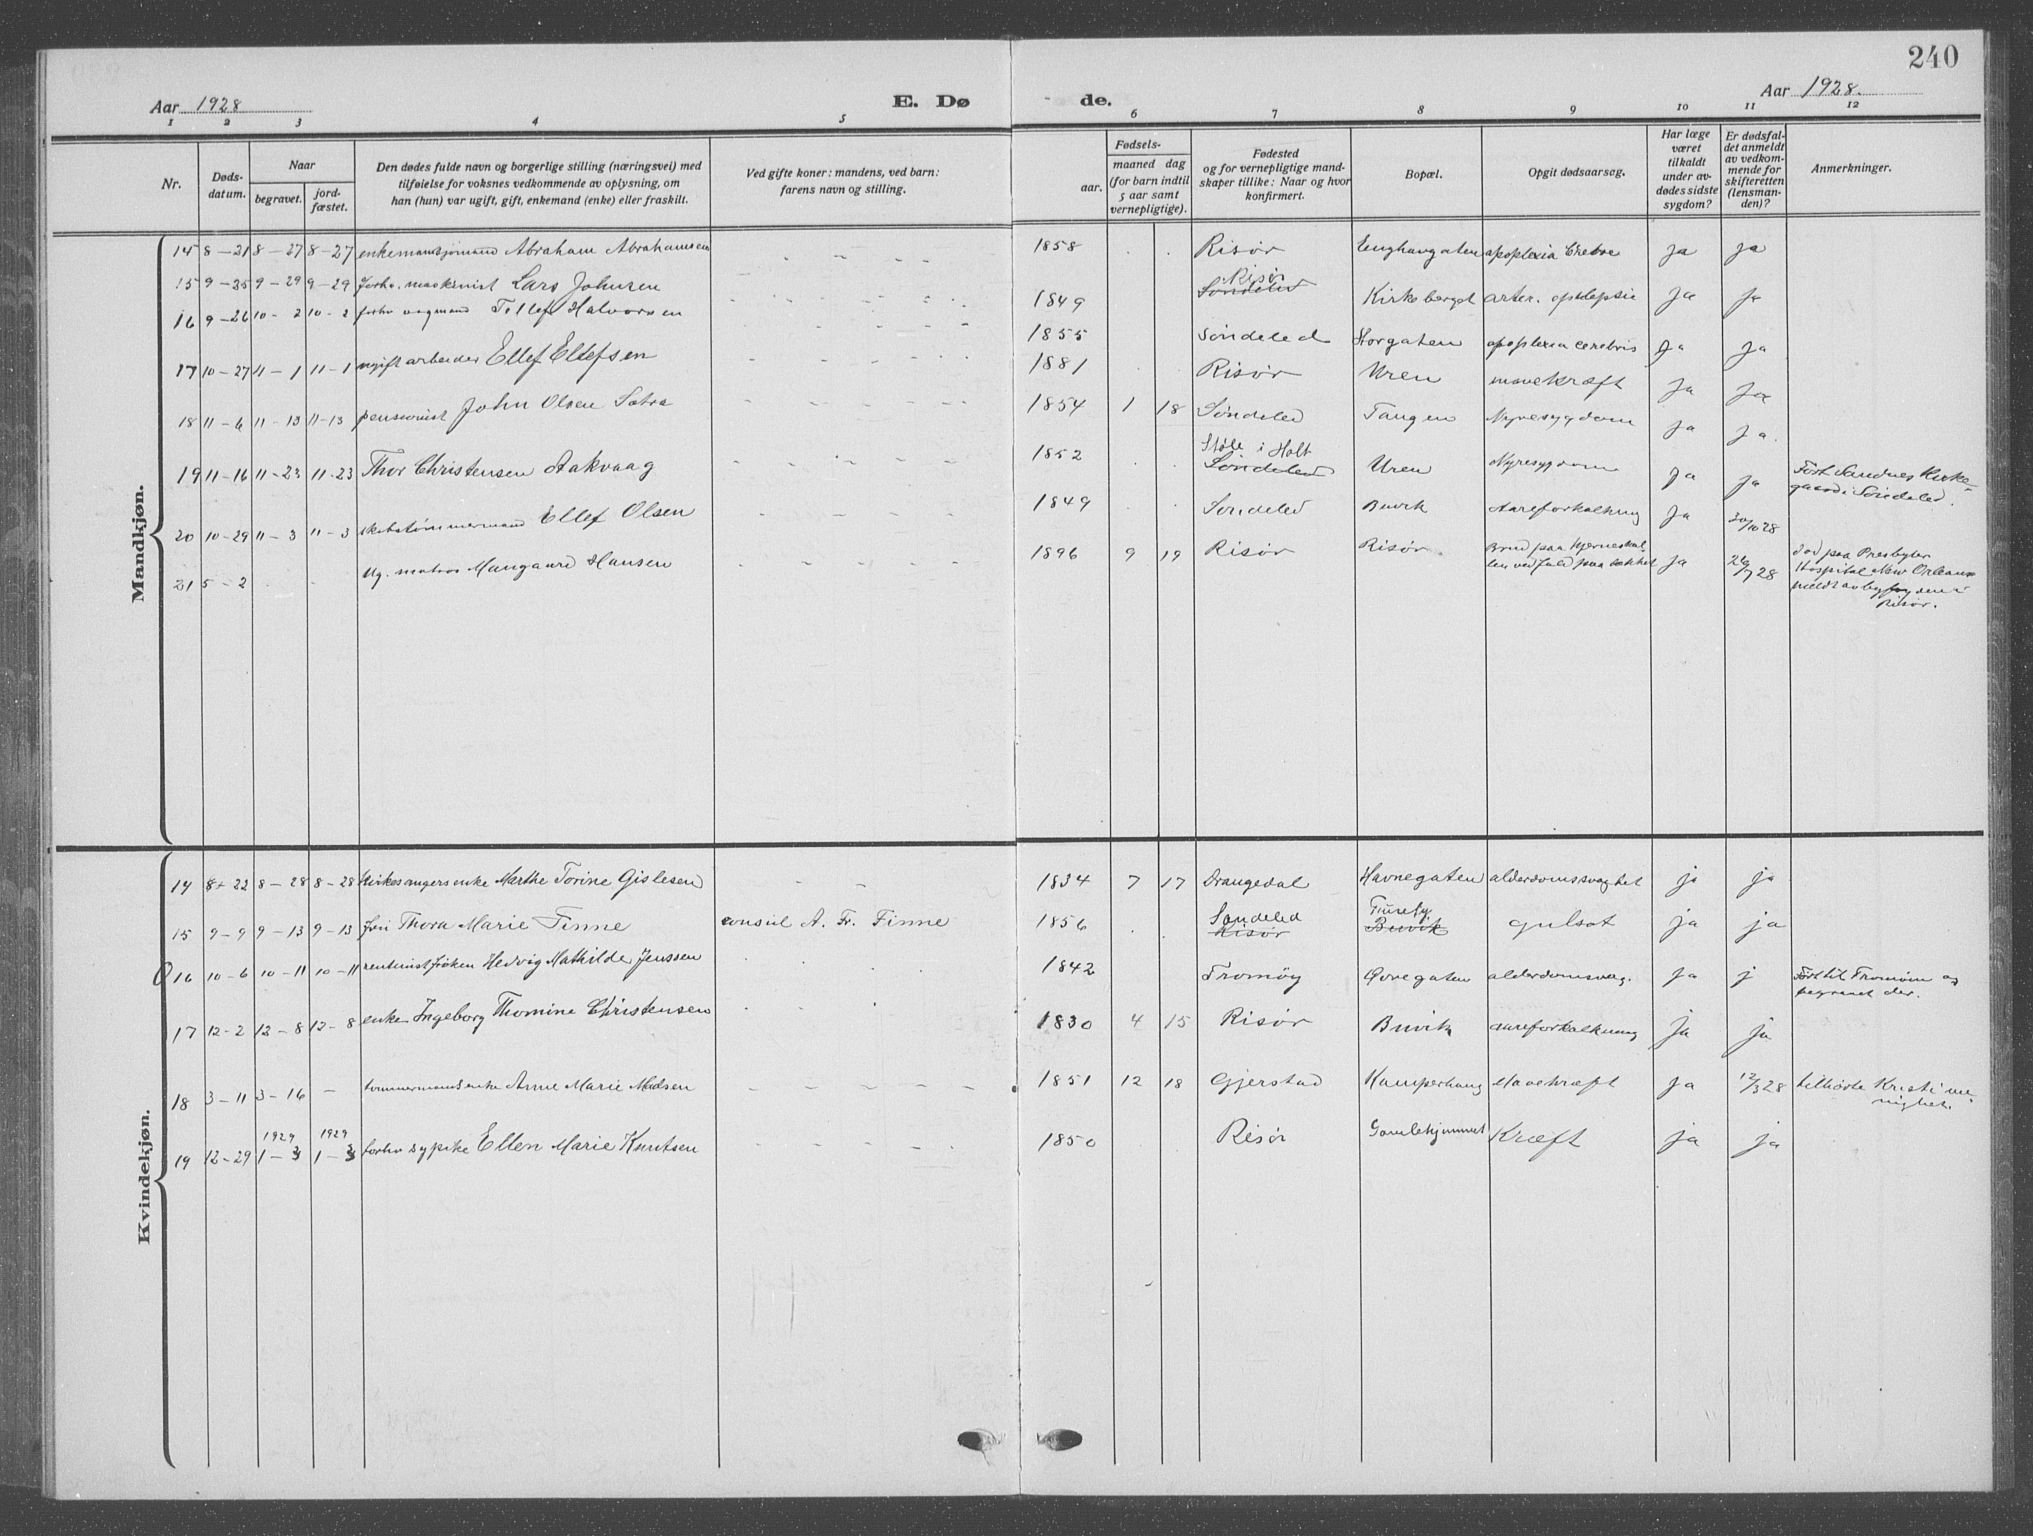 240
Aar 1928
E. Dø
de.
Aar 1928.
1 2 3 4 5 6 7 8 9 10 11 12
Nr.
Døds-
datum.
Naar
begravet.
jord-
fæstet.
Den dødes fulde navn og borgerlige stilling (næringsvei) med
tilføielse for voksnes vedkommende av oplysning, om
han (hun) var ugift, gift, enkemand (enke) eller fraskilt.
Ved gifte koner: mandens, ved barn:
farens navn og stilling.
Fødsels-
aar.
maaned dag
(for barn indtil
5 aar samt
vernepligtige).
Fødested
og for vernepligtige mand-
skaper tillike: Naar og hvor
konfirmert.
Bopæl.
Opgit dødsaarsag.
Har læge
været
tilkaldt
under av-
dødes sidste
sygdom?
Er dødsfal-
det anmeldt
av vedkom-
mende for
skifteretten
(lensman-
den)?
Anmerkninger.
Mandkjøn.
14 8-21 8-27 8-27 Abraham Abrahamsen 1858 Risør Enghaugaten apoplexia ja ja
15 9-25 9-29 9-29 forhv. maskinist Lars Johnsen 1849 Risør Søndeled Kirkeberget arter. ja ja
16 9-26 10-2 10-2 forhv Tellef Halvorsen 1855 Søndeled Storgaten apoplexia cerebris ja ja
17 10-27 11-1 11-1 ugift arbeider Ellef Ellefsen 1881 Risør Uren mavekræft ja ja
18 11-6 11-13 11-13 pensionist John Olsen Sætra 1854 1 18 Søndeled Tangen Nyresygdom ja ja.
19 11-16 11-23 11-23 Thor Christensen Aakvaag 1852 Støle i Holt Søndeled Uren Nyresygdom ja ja Ført Sandnes Kirke-
gaard i Søndeled.
20 10-29 11-3 11-3 skibstømmermand Ellef Olsen 1849 Søndeled Buvik Aareforkalkning ja 30/10 28
21 5-2 Ug. matros Mangaard Hansen 1896 9 19 Risør Risør Brud paa Hjerneskal-
len ved fald paa dækket ja 26/7 28 død paa Presbyter
Hospital New Orleans
meldt av byfogden i
Risør.
Kvindekjøn.
14 8-22 8-28 8-28 Kirkesangers enke Marthe Torine Gislesen 1834 7 17 Drangedal Havnegaten alderdomssvaghet ja ja
15 9-9 9-13 9-13 fru Thora Marie Finne consul A. Fr. Finne 1856 Søndeled Risør Buvik gulsot ja ja
16 10-6 10-11 10-11 rentenist frøken Hedvig Mathilde Jenssen 1842 Tromøy Øvregaten alderdomssvag. ja j Ført til Tromøen og
begravet der.
17 12-2 12-8 12-8 enke Ingeborg Thomine Christensen 1830 4 15 Risør Buvik aareforkalkning ja ja
18 3-11 3-16 - tømmermands enke Anne Marie Madsen 1851 12 18 Gjerstad Kamperhaug Mavekræft ja 12/3 28 tilhørte Kristi me-
nighet.
19 12-29 1929 1-3 1929 1-3 forhv sypike Ellen Marie Knutsen 1850 Risør Gamlehjemmet Kræft ja ja